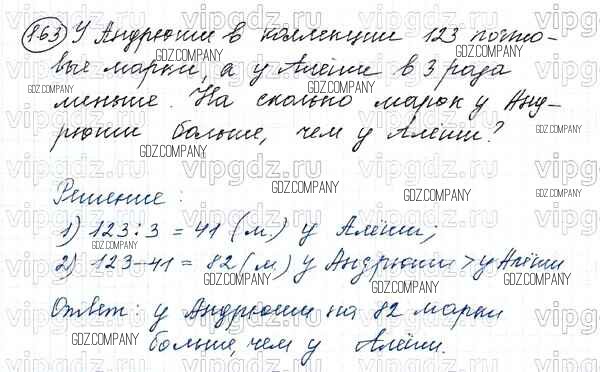 863) У Андрюши в коллекции 123 почто-
вые марки, а у Алёши в 3 раза
меньше. На сколько марок у Анд-
рюши больше, чем у Алёши?
Решение:
1) 123:3 = 41 (м.) у Алёши;
2) 123-41 = 82 (м.) у Андрюши > у Алёши
Ответ: у Андрюши на 82 марки
больше, чем у Алёши.
vipgdz.ru
GDZ.COMPANY